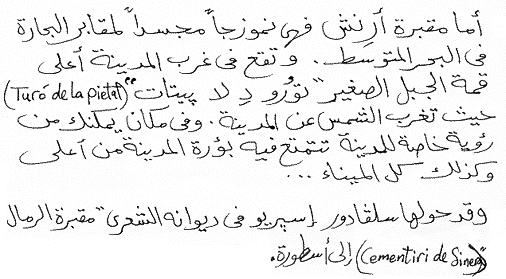 أما مقبرة أرنتش فهى نموزجاً مجسداً لمقابر البحارة
فى البحر المتوسط. وتقع فى غرب المدينة أعلى
قمة الجبل الصغير "تورُو دِ لا پيتات" (Turó de la pietat)
حيث تغرب الشمس عن المدينة. وفى مكان يمكنك من
رؤية خاصة للمدينة تتمتع فيه بؤرة المدينة من أعلى
وكذلك كل الميناء ...
وقد حولها سلڤادور إسپريو فى ديوانه الشعرى "مقبرة الرمال
(Cementiri de Sinera)" إلى أسطورة.